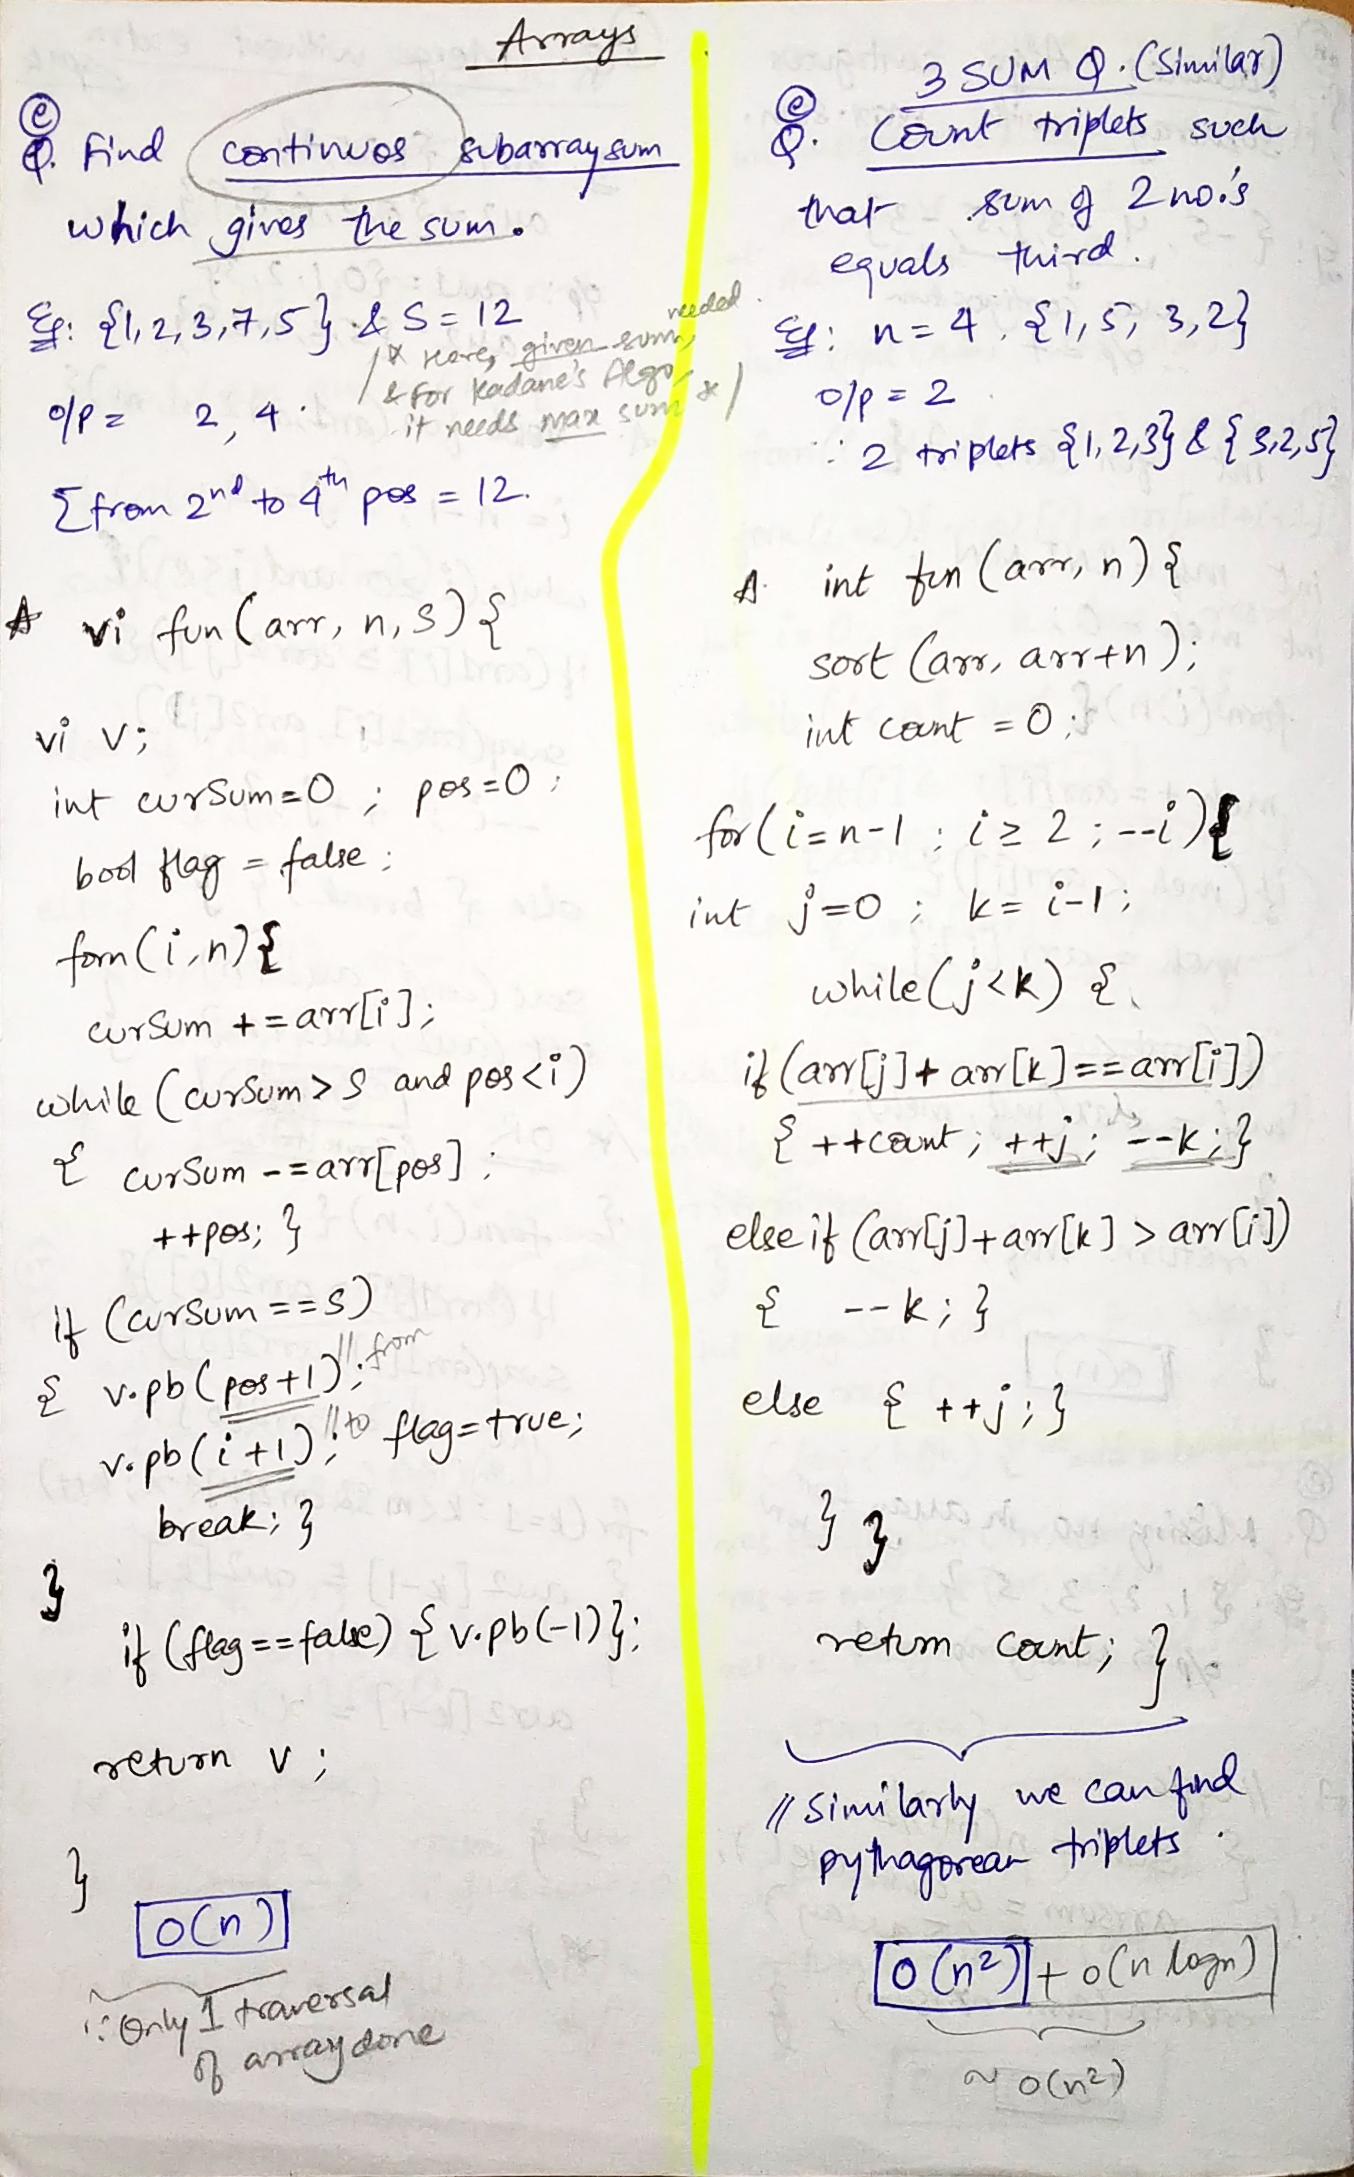 Arrays
@
Q. Find continuos subarray sum
which gives the sum.
Eg: {1, 2, 3, 7, 5} & S = 12
/* Here, given sum needed,
& for Kadane's Algo,
it needs max sum */
o/p = 2, 4.
{from 2nd to 4th pos = 12.
A vi fun (arr, n, S) {
vi v;
int curSum=0 ; pos=0 ;
bool flag = false ;
forn(i,n){
curSum += arr[i];
while (curSum > S and pos<i)
{ curSum -= arr[pos] ;
++pos; }
if (curSum == S)
{ v.pb(pos+1); //from
v.pb(i+1); //to flag=true;
break; }
}
if (flag == false) { v.pb(-1)};
return v ;
}
O(n)
∵ Only 1 traversal
of array done
3 SUM Q. (Similar)
@
Q. Count triplets such
that sum of 2 no.'s
equals third.
Eg: n = 4. {1, 5, 3, 2}
o/p = 2
∵ 2 triplets {1, 2, 3} & {3, 2, 5}
A. int fun (arr, n) {
sort (arr, arr+n);
int count = 0 ;
for(i=n-1 ; i ≥ 2 ; --i){
int j=0 ; k= i-1 ;
while(j<k) {
if (arr[j]+ arr[k]==arr[i])
{ ++count ; ++j ; --k ; }
else if (arr[j]+arr[k] > arr[i])
{ --k ; }
else { ++j ; }
} }
return count; }
// Similarly we can find
pythagorean triplets.
O(n²) + O(n logn)
~ O(n²)